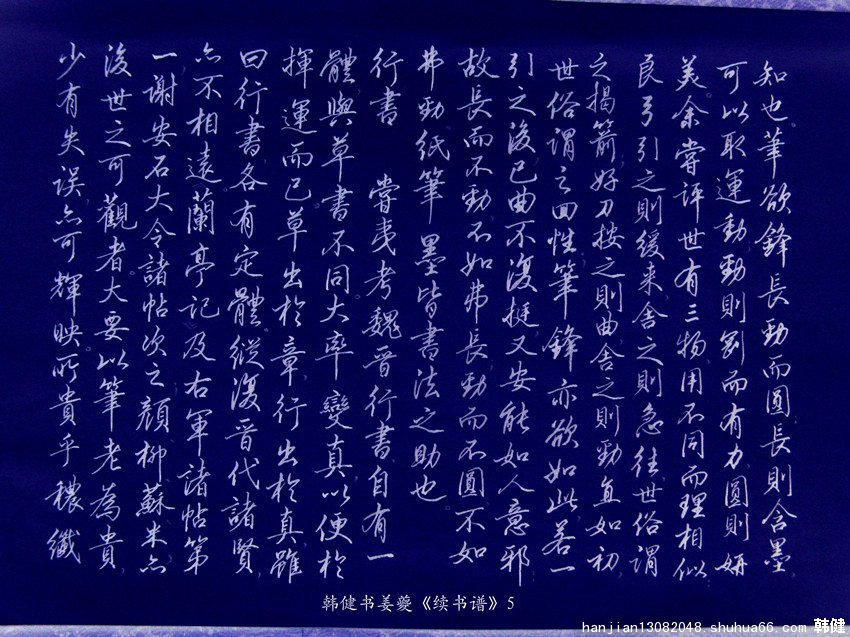 知也筆欲鋒長勁而圓長則含墨
可以取運動勁則剛而有力圓則妍
美余嘗評世有三物用不同而理相似
良弓引之則緩来舍之則急往世俗謂
之揭箭好刀按之則曲舍之則勁直如初
世俗謂之回性筆鋒亦欲如此若一
引之後已曲不復挺又安能如人意邪
故長而不勁不如弗長勁而不圓不如
弗勁紙筆墨皆書法之助也
行書 嘗夷考魏晉行書自有一
體與草書不同大率變真以便於
揮運而已草出於章行出於真雖
曰行書各有定體縱復晉代諸賢
亦不相遠蘭亭記及右軍諸帖第
一謝安石大令諸帖次之顏柳蘇米亦
後世之可觀者大要以筆老為貴
少有失誤亦可輝映所貴乎穠纖
韩健书姜夔《续书谱》5
hanjian13082048.shuhua66.com 韩健